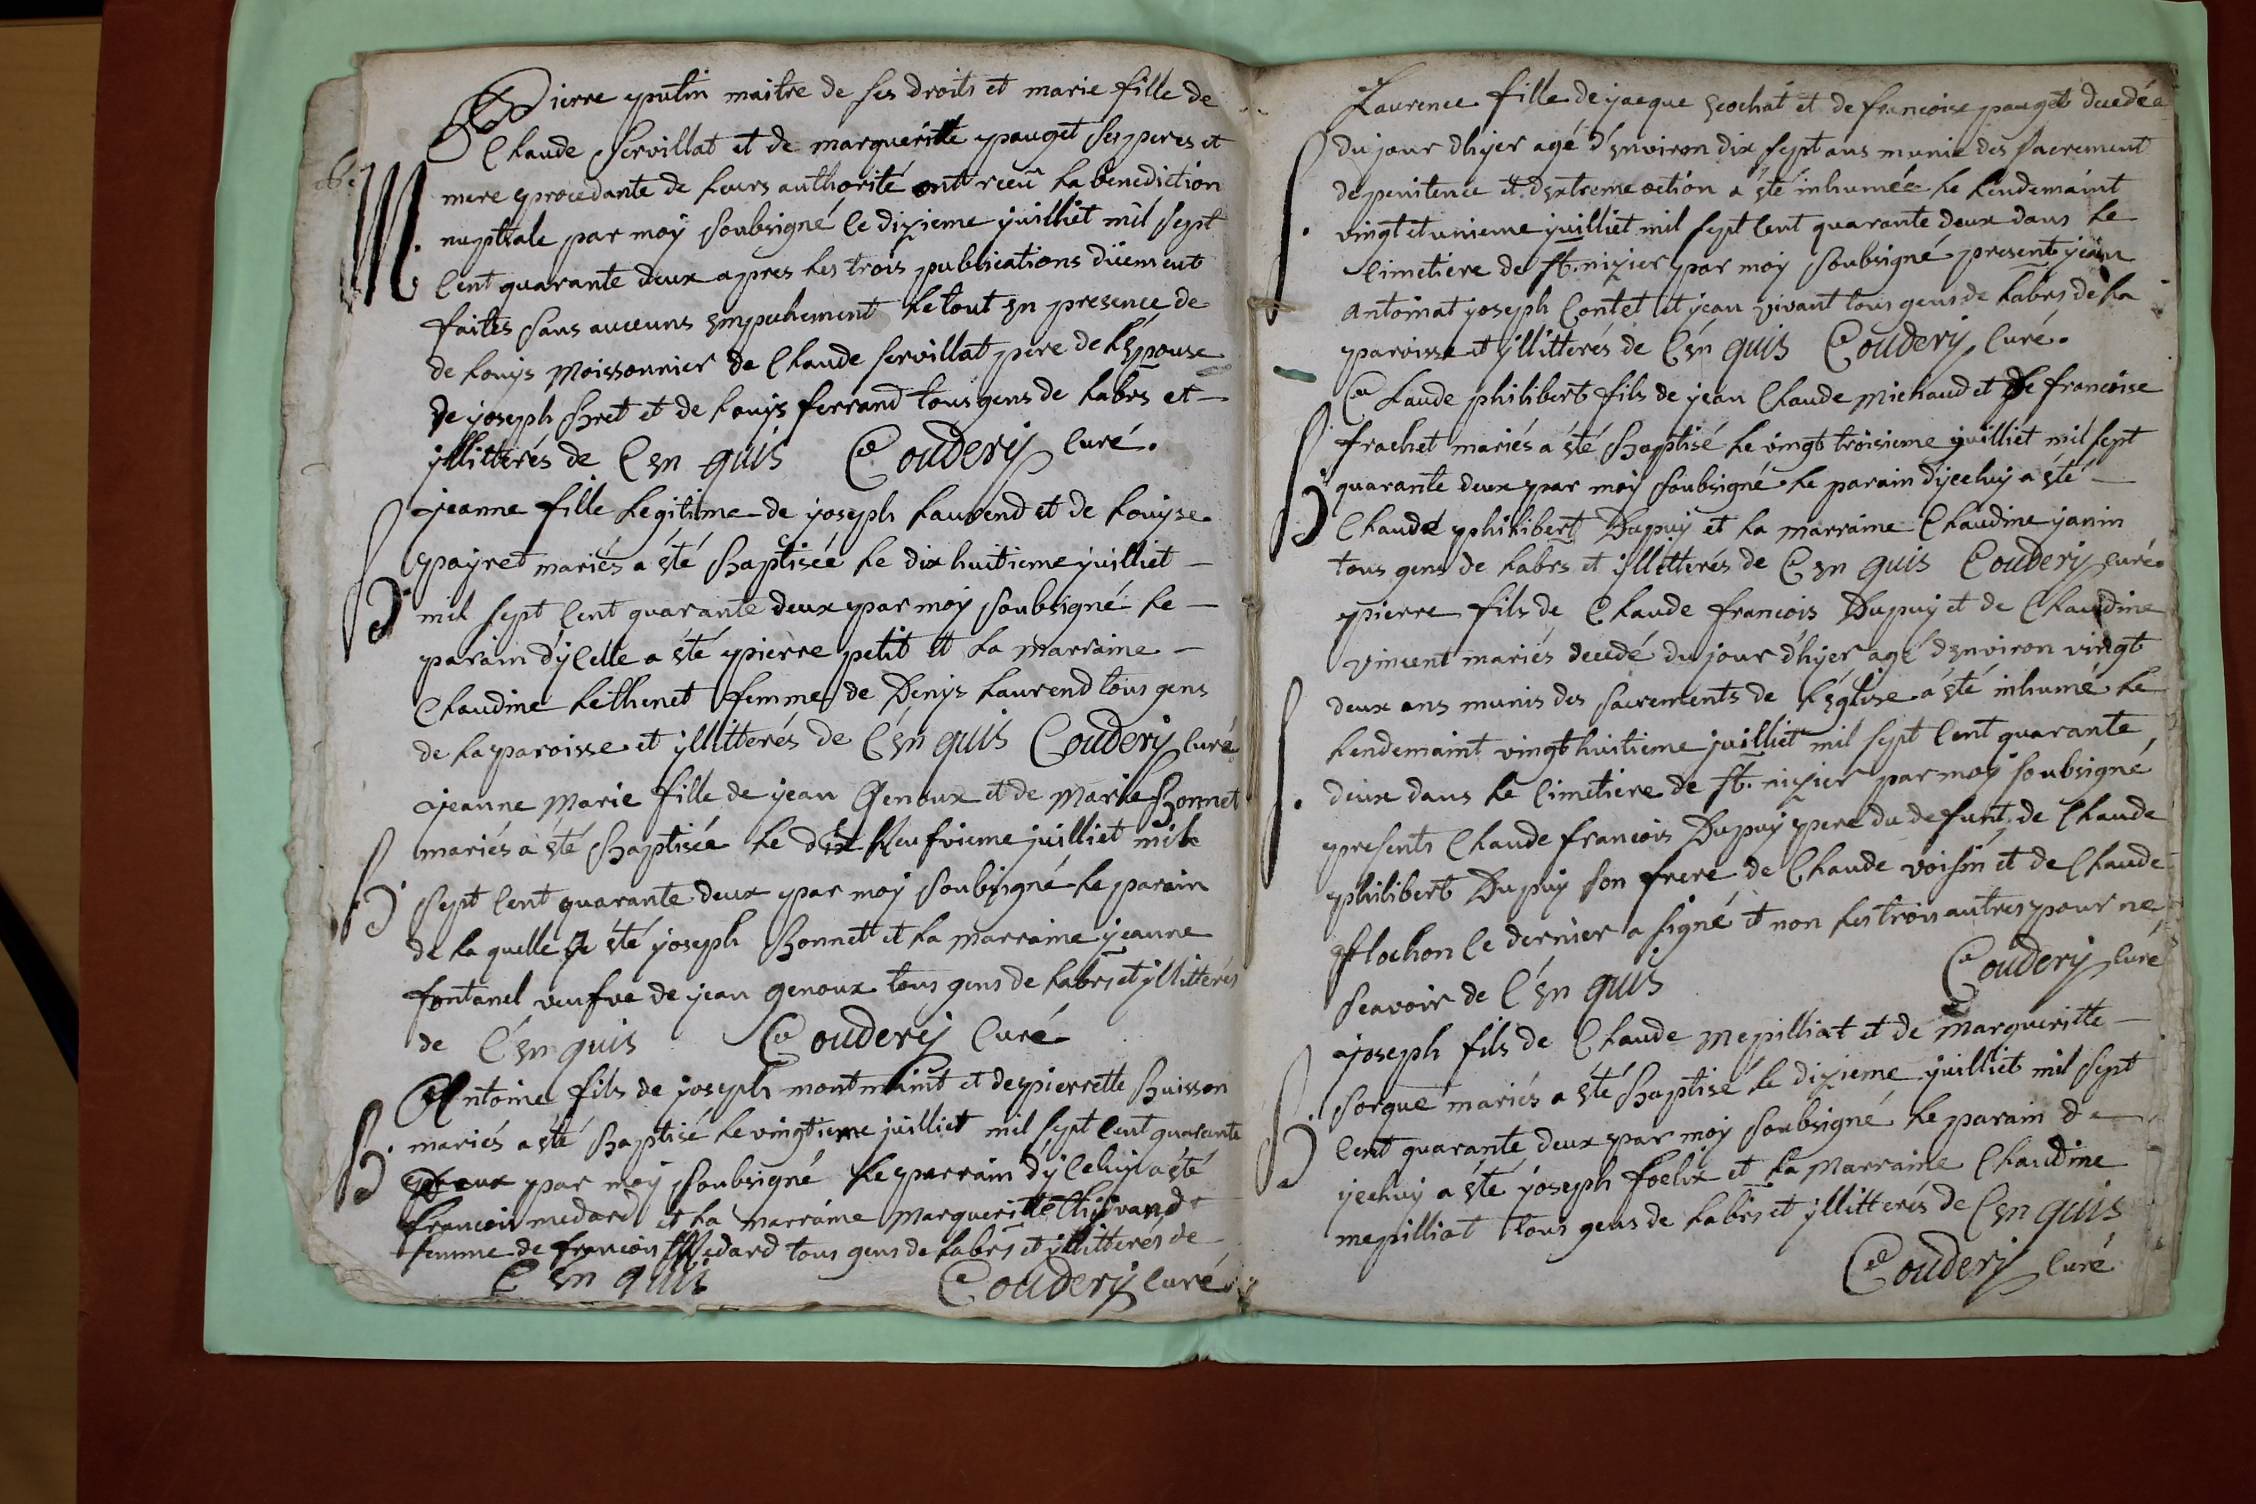 Pierre putin maitre de ses droits et marie fille de
Claude Servillat et de margueritte pauget ses peres et
M.
mere procedante de leurs authorité ont rceü la benediction
nuptiale par moy soubsigné le dixieme juilliet mil sept
cent quarante deux apres les trois publications düement
faites sans aucuns empechement le tout en presence de
de louys Moissonnier de Claude servillat pere de lépouse
de joseph Bret et de louys ferrand tous gens de labrs et
yllitterés de Cen quis Couderij curé.
B.
jeanne fille legitime de joseph laurend et de louyse
payret mariés a été Baptisée le dix huitieme juilliet
mil sept cent quarante deux par moy soubsigné le
parain dycelle a été pierre petit et la marraine
Claudine lethenet femme de Denys laurend tous gens
de la paroisse et yllitterés de Cén quis Couderij curé
B.
jeanne Marie fille de jean Genoux et de Marie Bonnet
mariés a été Baptisée le dix Neufvieme juilliet mil
sept cent quarante deux par moy soubsigné le parain
de laquelle a été joseph Bonnet et la marraine jeanne
fontanel veufve de jean genoux tous gens de labrs et yllitterés
de Cén quis Couderij Curé
B.
Antoine fils de joseph montmaint et de pierrette Buisson
mariés a été Baptisé le vingtieme juilliet mil sept cent quarante
Deux par moy soubsigné le parrain dyceluy a été
francois medard et la marraine margueritte
femme de francois Medard tous gens de labrs et yllitterés de
Cen quis Couderij curé
S.
Laurence fille de jacque scochat et de francoise pauget decedée
du jour dhyer agé d'environ dix sept ans munie des sacrement
de penitence et dextreme oction a été inhumée le lendemaint
vingt et unieme juilliet mil sept cent quarante deux dans le
cimetiere de st. nizier par moy soubsigné present jean
antoinat joseph Contet et jean vivant tous gens de labrs de la
paroisse et yllitterés de Cén quis Couderij curé.
B.
Claude philibert fils de jean Claude Michaud et De francoise
frachet mariés a été Baptisé le vingt troisieme juilliet mil sept
quarante deux par moy soubsigné le parain dyceluy a été
Claude philibert Dupuy et la marraine Claudine janin
tous gens de labrs et yllitterés de Cen quis Couderij curé.
S.
pierre fils de Claude francois Dupuy et de Claudine
vincent mariés decedé du jour d'hyer agé denviron vingt
deux ans munis des sacrements de l'église a été inhumé le
lendemaint vingt huitieme juilliet mil sept cent quarante
deux dans le cimetiere de st. nizier par moy soubsigné
presents Claude francois Dupuy pere du defunt, de Claude
philibert Dupuy son frere de Claude voisin et de Claude
flochon le dernier a signé et non les trois autres pour ne
scavoir de l'én quis Couderij curé
B.
joseph fils de Claude Mepilliat et de Margueritte
sorque mariés a été Baptisé le dixieme juilliet mil sept
cent quarante deux par moy soubsigné le parain d
yceluy a été joseph foelix et la Marraine Claudine
mepilliat tous gens de labrs et yllitterés de Cen quis
Couderij curé